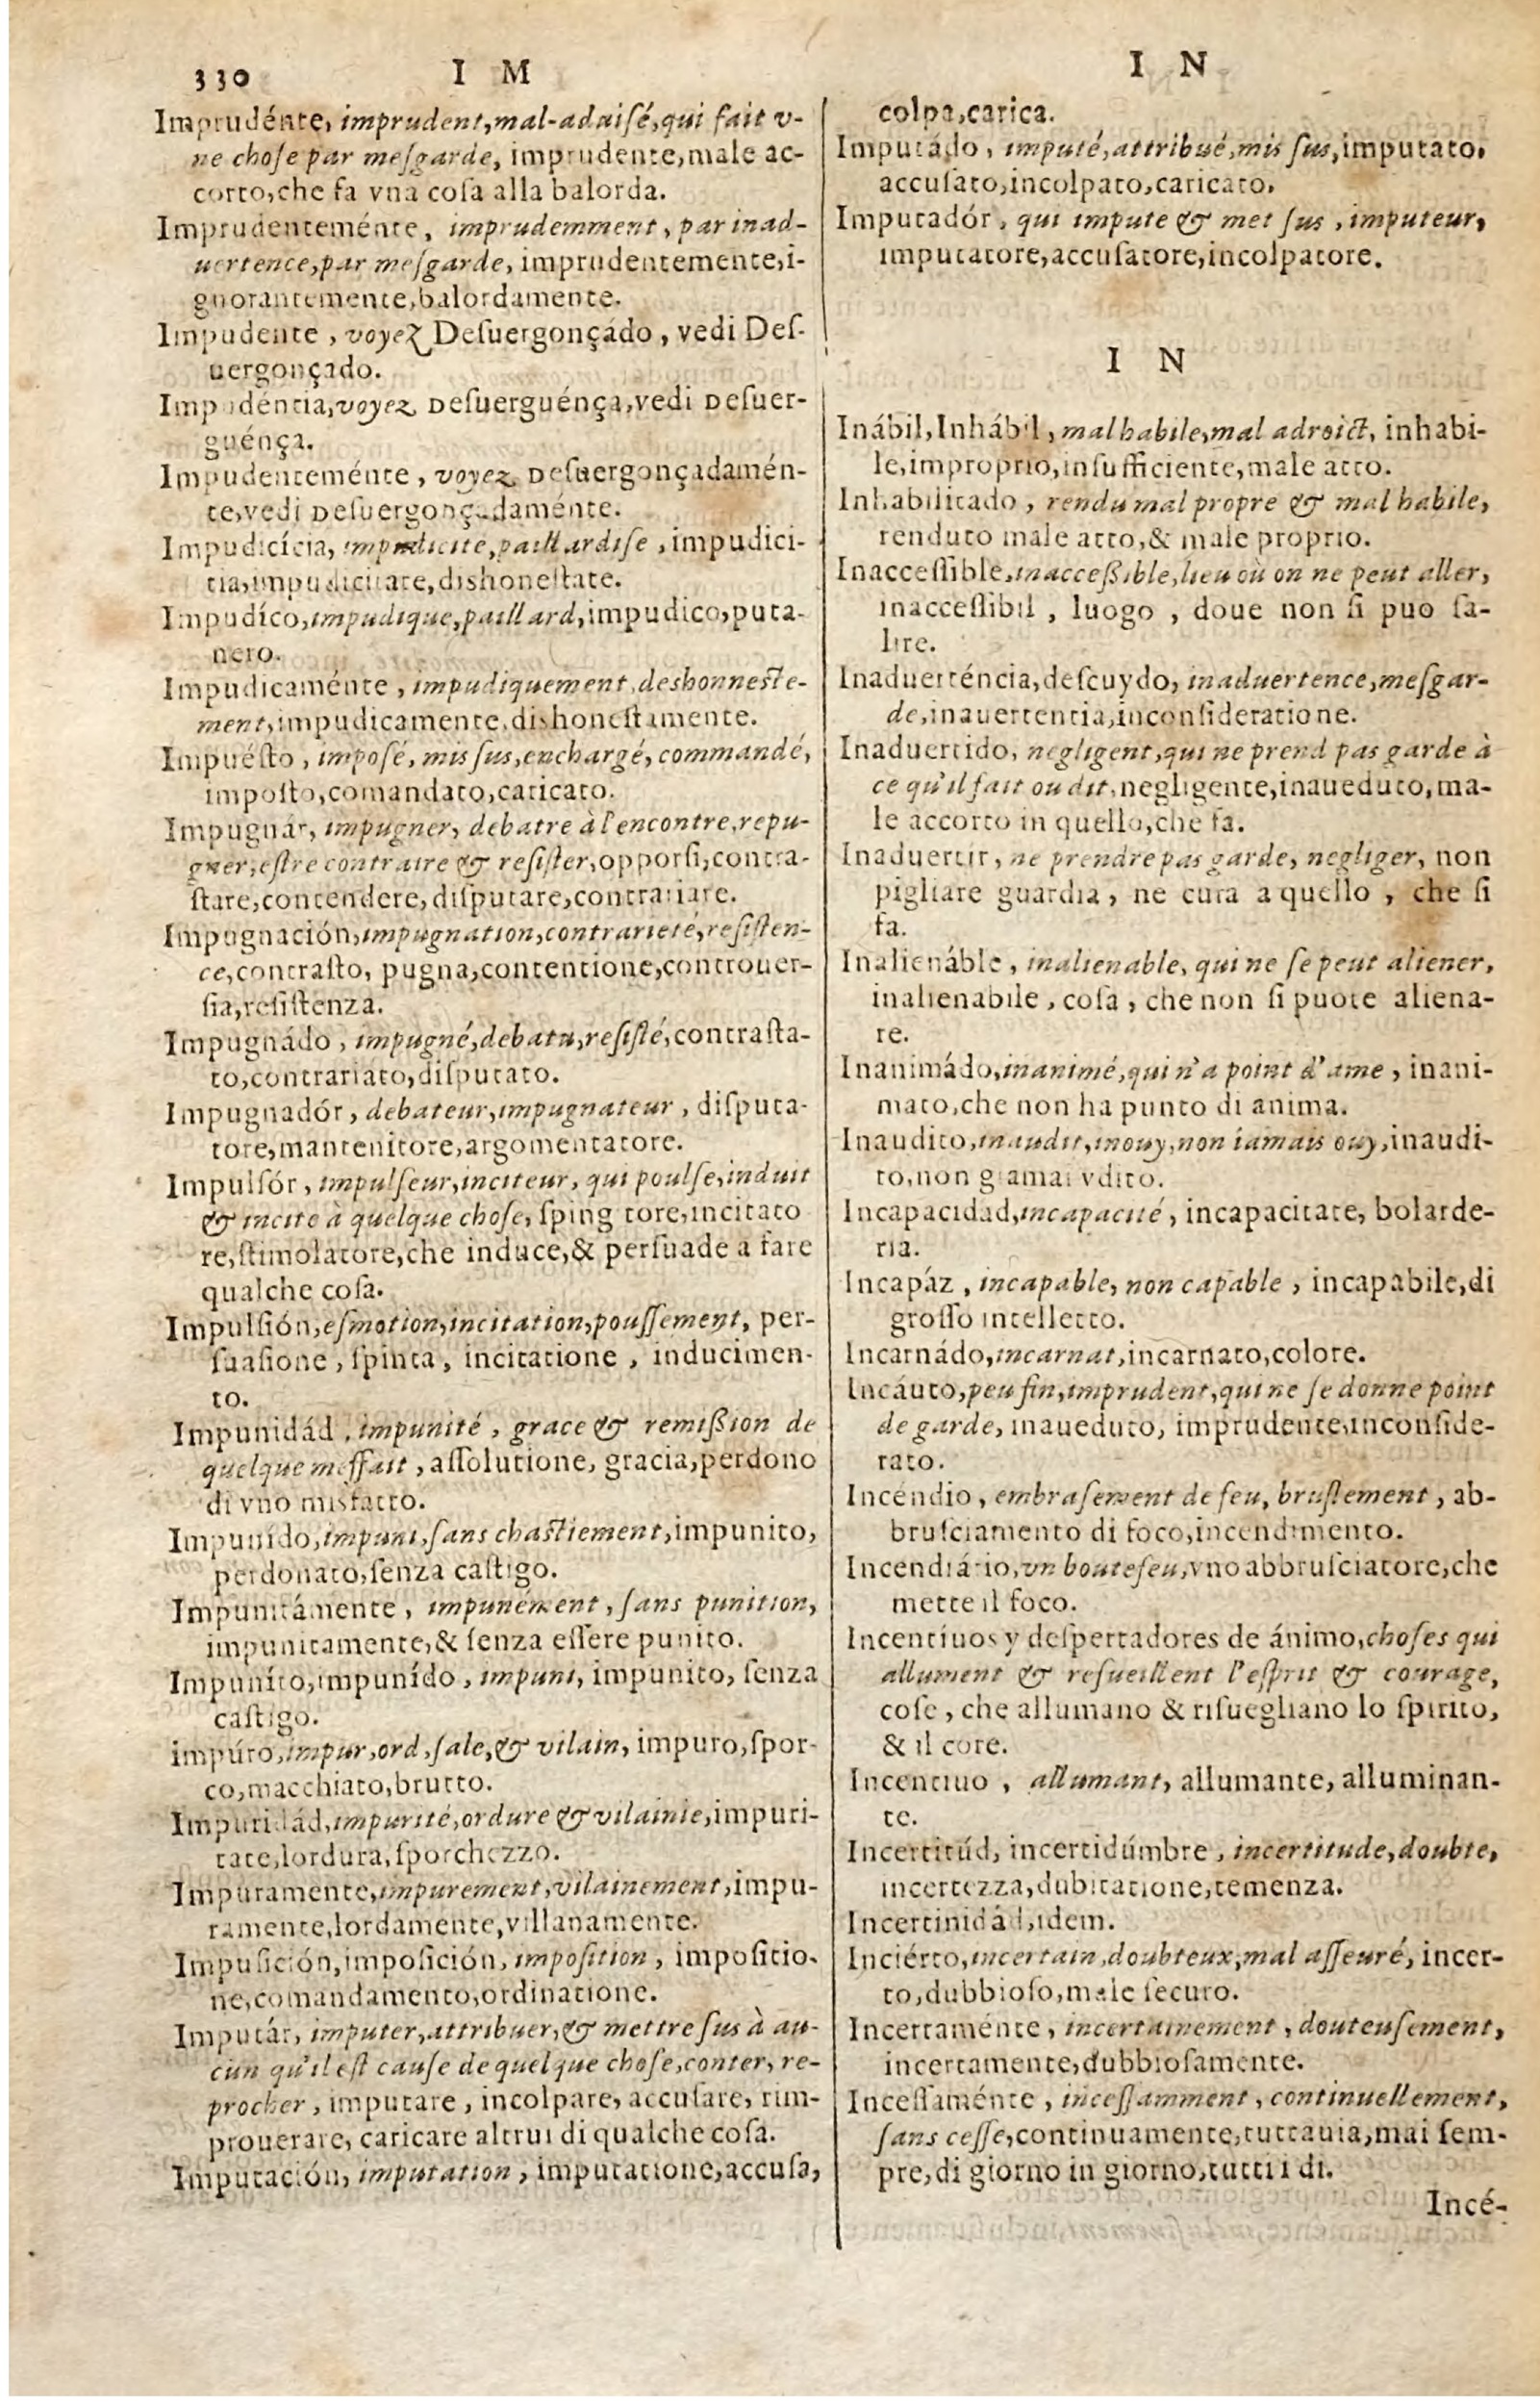 330 I M
Imprudénte, imprudent, mal-aduisé, qui fait v-
ne chose par mesgarde, imprudente, male ac-
corto, che fa vna cosa alla balorda.
Imprudenteménte, imprudemment, par inad-
uertence, par mesgarde, imprudentemente, i-
gnorantemente, balordamente.
Impudente, voyez Desuergonçádo, vedi Des-
uergonçado.
Impudéncia, voyez Desuerguénça, vedi Desuer-
guénça.
Impudenteménte, voyez Desuergonçadamén-
te, vedi Desuergonçadaménte.
Impudicícia, impudicité, paillardise, impudici-
tia, impudicitate, dishonestate.
Impudíco, impudique, paillard, impudico, puta-
nero.
Impudicaménte, impudiquement, deshonneste-
ment, impudicamente, dishonestamente.
Impuésto, imposé, mis sus, enchargé, commandé,
imposto, comandato, caricato.
Impugnár, impugner, debatre à l'encontre, repu-
gner, estre contraire & resister, opporsi, contra-
stare, contendere, disputare, contrariare.
Impugnación, impugnation, contrarieté, resisten-
ce, contrasto, pugna, contentione, controuer-
sia, resistenza.
Impugnádo, impugné, debatu, resisté, contrasta-
to, contrariato, disputato.
Impugnadór, debateur, impugnateur, disputa-
tore, mantenitore, argomentatore.
Impulsór, impulseur, inciteur, qui poulse, induit
& incite à quelque chose, sping tore, incitato
re, stimolatore, che induce, & persuade a fare
qualche cosa.
Impulsión, esmotion, incitation, poussement, per-
suasione, spinta, incitatione, inducimen-
to.
Impunidád, impunité, grace & remission de
quelque meffait, assolutione, gracia, perdono
di vno misfatto.
Impunído, impuni, sans chastiement, impunito,
perdonato, senza castigo.
Impunitámente, impunément, sans punition,
impunitamente, & senza essere punito.
Impuníto, impunído, impuni, impunito, senza
castigo.
impúro, impur, ord, sale, & vilain, impuro, spor-
co, macchiato, brutto.
Impuridád, impurité, ordure & vilainie, impuri-
tate, lordura, sporchezzo.
Impuramente, impurement, vilainement, impu-
ramente, lordamente, villanamente.
Impusición, imposición, imposition, impositio-
ne, comandamento, ordinatione.
Imputár, imputer, attribuer, & mettre sus à au-
cun qu'il est cause de quelque chose, conter, re-
procher, imputare, incolpare, accusare, rim-
prouerare, caricare altrui di qualche cosa.
Imputación, imputation, imputatione, accusa,
I N
colpa, carica.
Imputádo, imputé, attribué, mis sus, imputato,
accusato, incolpato, caricato.
Imputadór, qui impute & met sus, imputeur,
imputatore, accusatore, incolpatore.
I N
Inábil, Inhábil, malhabile, mal adroict, inhabi-
le, improprio, insufficiente, male atto.
Inhabilitado, rendu mal propre & mal habile,
renduto male atto, & male proprio.
Inaccessible, inaccessible, lieu où on ne peut aller,
inaccessibil, luogo, doue non si puo sa-
lire.
Inaduerténcia, descuydo, inaduertence, mesgar-
de, inauertentia, inconsideratione.
Inaduertido, negligent, qui ne prend pas garde à
ce qu'il fait ou dit, negligente, inaueduto, ma-
le accorto in quello, che fa.
Inaduertir, ne prendre pas garde, negliger, non
pigliare guardia, ne cura a quello, che si
fa.
Inalienáble, inalienable, qui ne se peut aliener,
inalienabile, cosa, che non si puote aliena-
re.
Inanimádo, inanimé, qui n'a point d'ame, inani-
mato, che non ha punto di anima.
Inaudito, inaudit, inouy, non iamais ouy, inaudi-
to, non giamai vdito.
Incapacidad, incapacité, incapacitate, bolarde-
ria.
Incapáz, incapable, non capable, incapabile, di
grosso intelletto.
Incarnádo, incarnat, incarnato, colore.
Incáuto, peu fin, imprudent, qui ne se donne point
de garde, inaueduto, imprudente, inconside-
rato.
Incéndio, embrasement de feu, bruslement, ab-
brusciamento di foco, incendimento.
Incendiário, vn boutefeu, vno abbrusciatore, che
mette il foco.
Incentíuos y despertadores de ánimo, choses qui
allument & resueillent l'esprit & courage,
cose, che allumano & risuegliano lo spirito,
& il core.
Incentiuo, allumant, allumante, alluminan-
te.
Incertitúd, incertidúmbre, incertitude, doubte,
incertezza, dubitatione, temenza.
Incertinidád, idem.
Inciérto, incertain, doubteux, mal asseuré, incer-
to, dubbioso, male securo.
Incertaménte, incertainement, douteusement,
incertamente, dubbiosamente.
Incessaménte, incessamment, continuellement,
sans cesse, continuamente, tuttauia, mai sem-
pre, di giorno in giorno, tutti i di.
Incé-